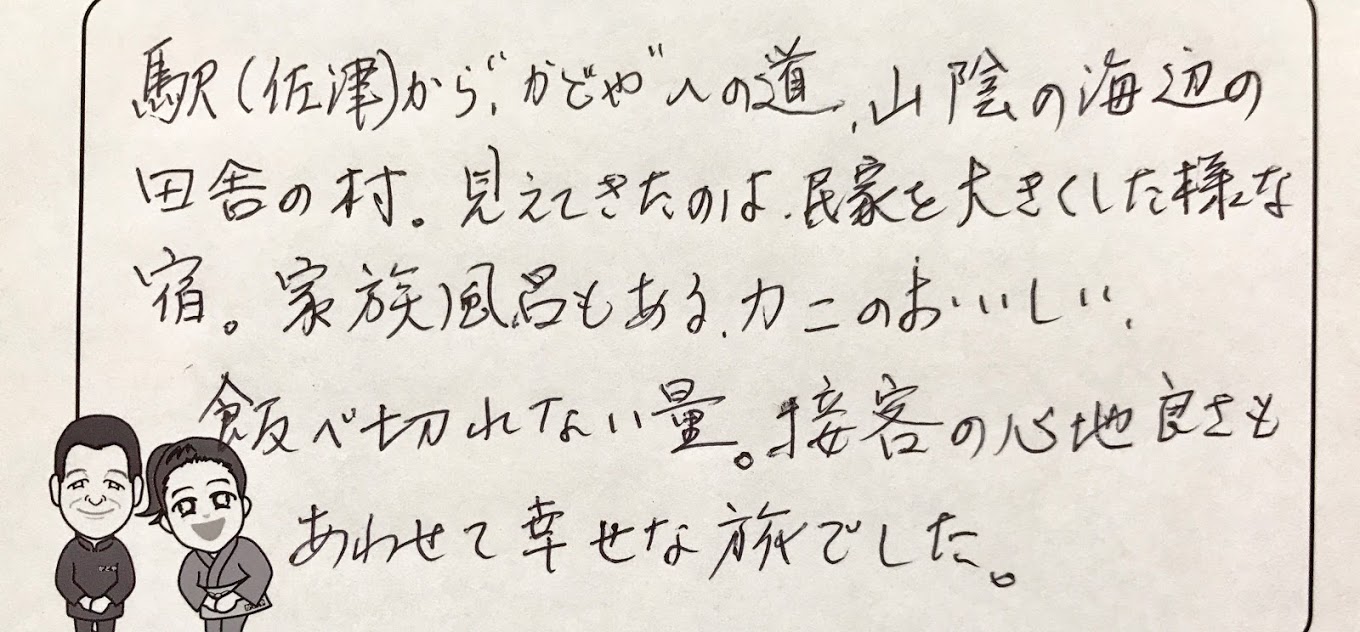 駅(佐津)から"かどや"への道、山陰の海辺の
田舎の村。見えてきたのは、民家を大きくした様な
宿。家族風呂もある、カニのおいしい、
飯べ切れない量。接客の心地良さも
あわせて幸せな旅でした。